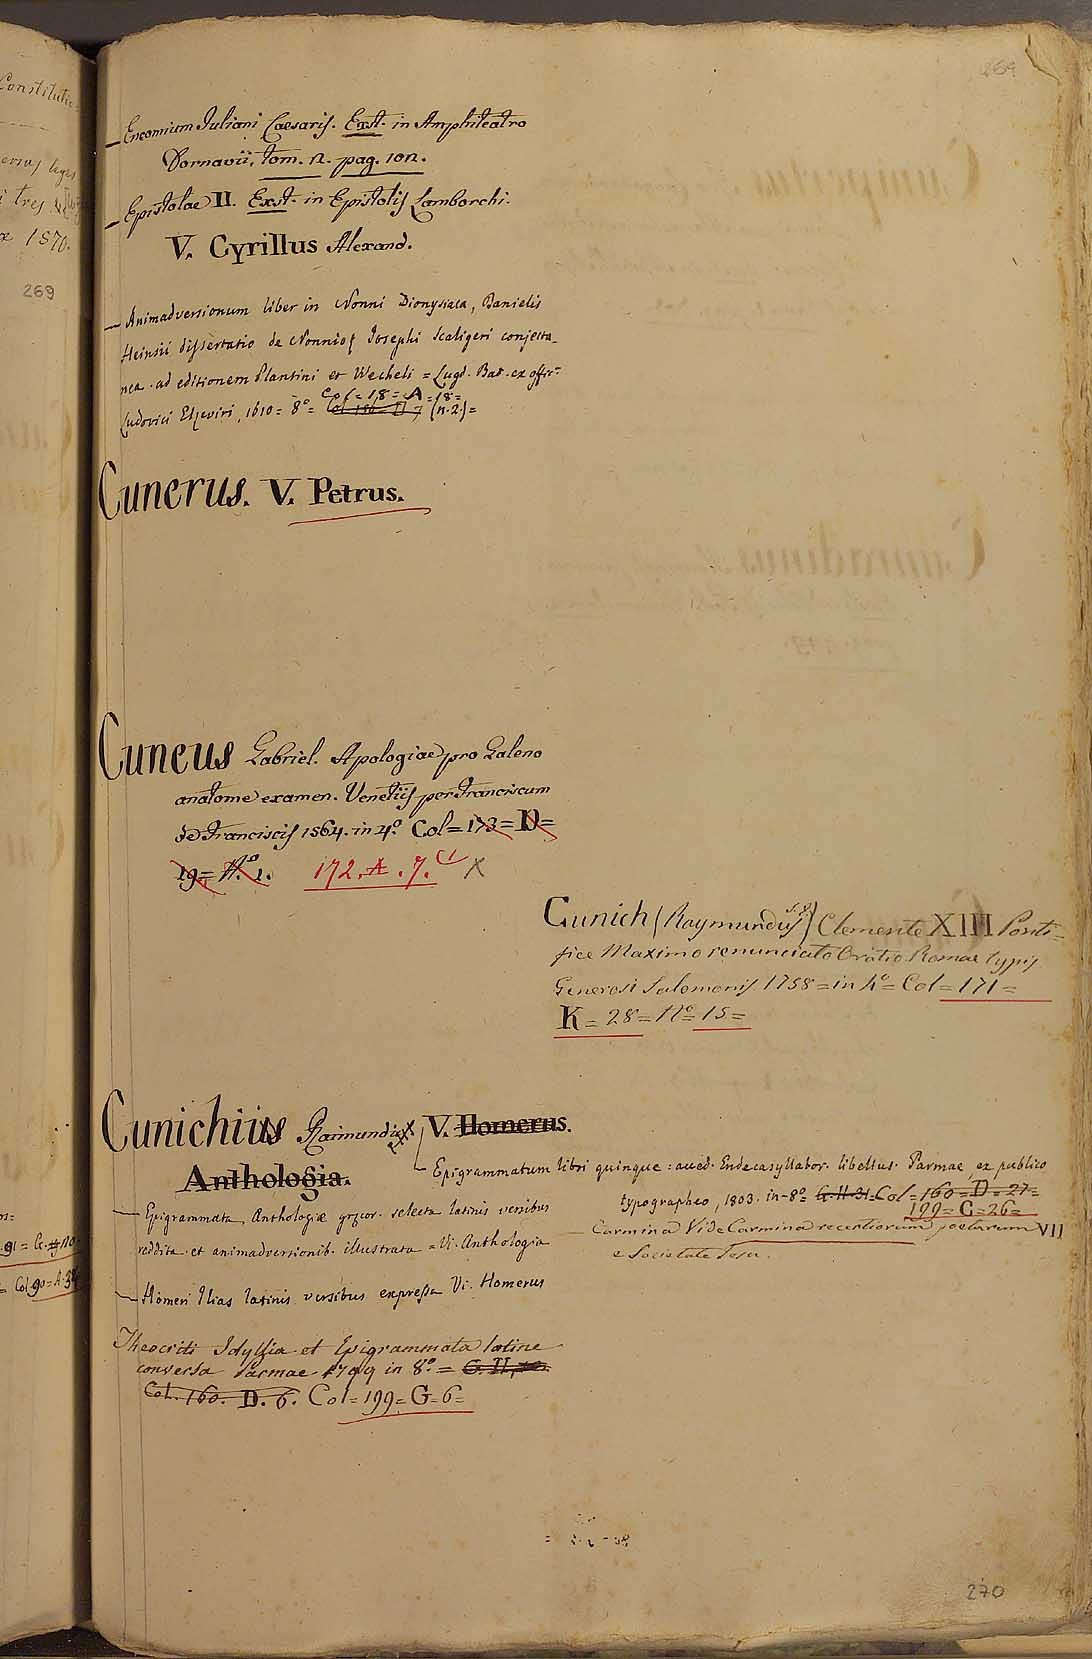 Constitutio
tres
1570.
269
269
Encomium Iuliani Caesaris. Exst. in Amphiteatro
Dornavii, tom. n. pag. 1on.
Epistolae II. Exst. in Epistolis Lamborchi.
V. Cyrillus Alexand.
Animadversionum liber in Nonni Dionysiaca, Danielis
Heinsii dissertatio de Nonnio, Iosephi Scaligeri conjecta-
nea. ad editionem Plantini et Wecheli = Lugd. Bat. ex offic=
Col = 18 = A = 18 =
Ludovici Elzeviri, 1610 = 8º = (n. 2.) =
Cunerus. V. Petrus.
Cuneus Gabriel. Apologiae pro Galeno
anatome examen. Venetiis per Franciscum
de Franciscis 1564. in 4º. Col = 173 = D =
19 = Nº. 1. 172. A. 7. X
Cunich (Raymundus) Clemente XIII Ponti=
fice Maximo renunciato Oratio Romae typis
Generosi Salomonis 1758 = in 4º = Col = 171 =
K = 28 = Nº = 15 =
Cunichius Raimundus V. Homerus.
Anthologia.
Epigrammatum libri quinque: acced. Endecasyllabor. libellus. Parmae ex publico
typographeo, 1803. in-8º = G. H. 31. Col = 160 = D = 27 =
199 = G = 26 =
Carmina Vide Carmina recentiorum poetarum VII
e Societate Jesu.
Epigrammata Anthologiae grecor. selecta latinis versibus
reddita et animadversionib. illustrata = Vi. Anthologia
Homeri Ilias latinis versibus expressa Vi. Homerus
Theocriti Idyllia et Epigrammata latine
conversa Parmae 1799 in 8º. = G. H.
Col. 160. D. 6. Col = 199 = G = 6 =
Col. 90 = A. 3
270